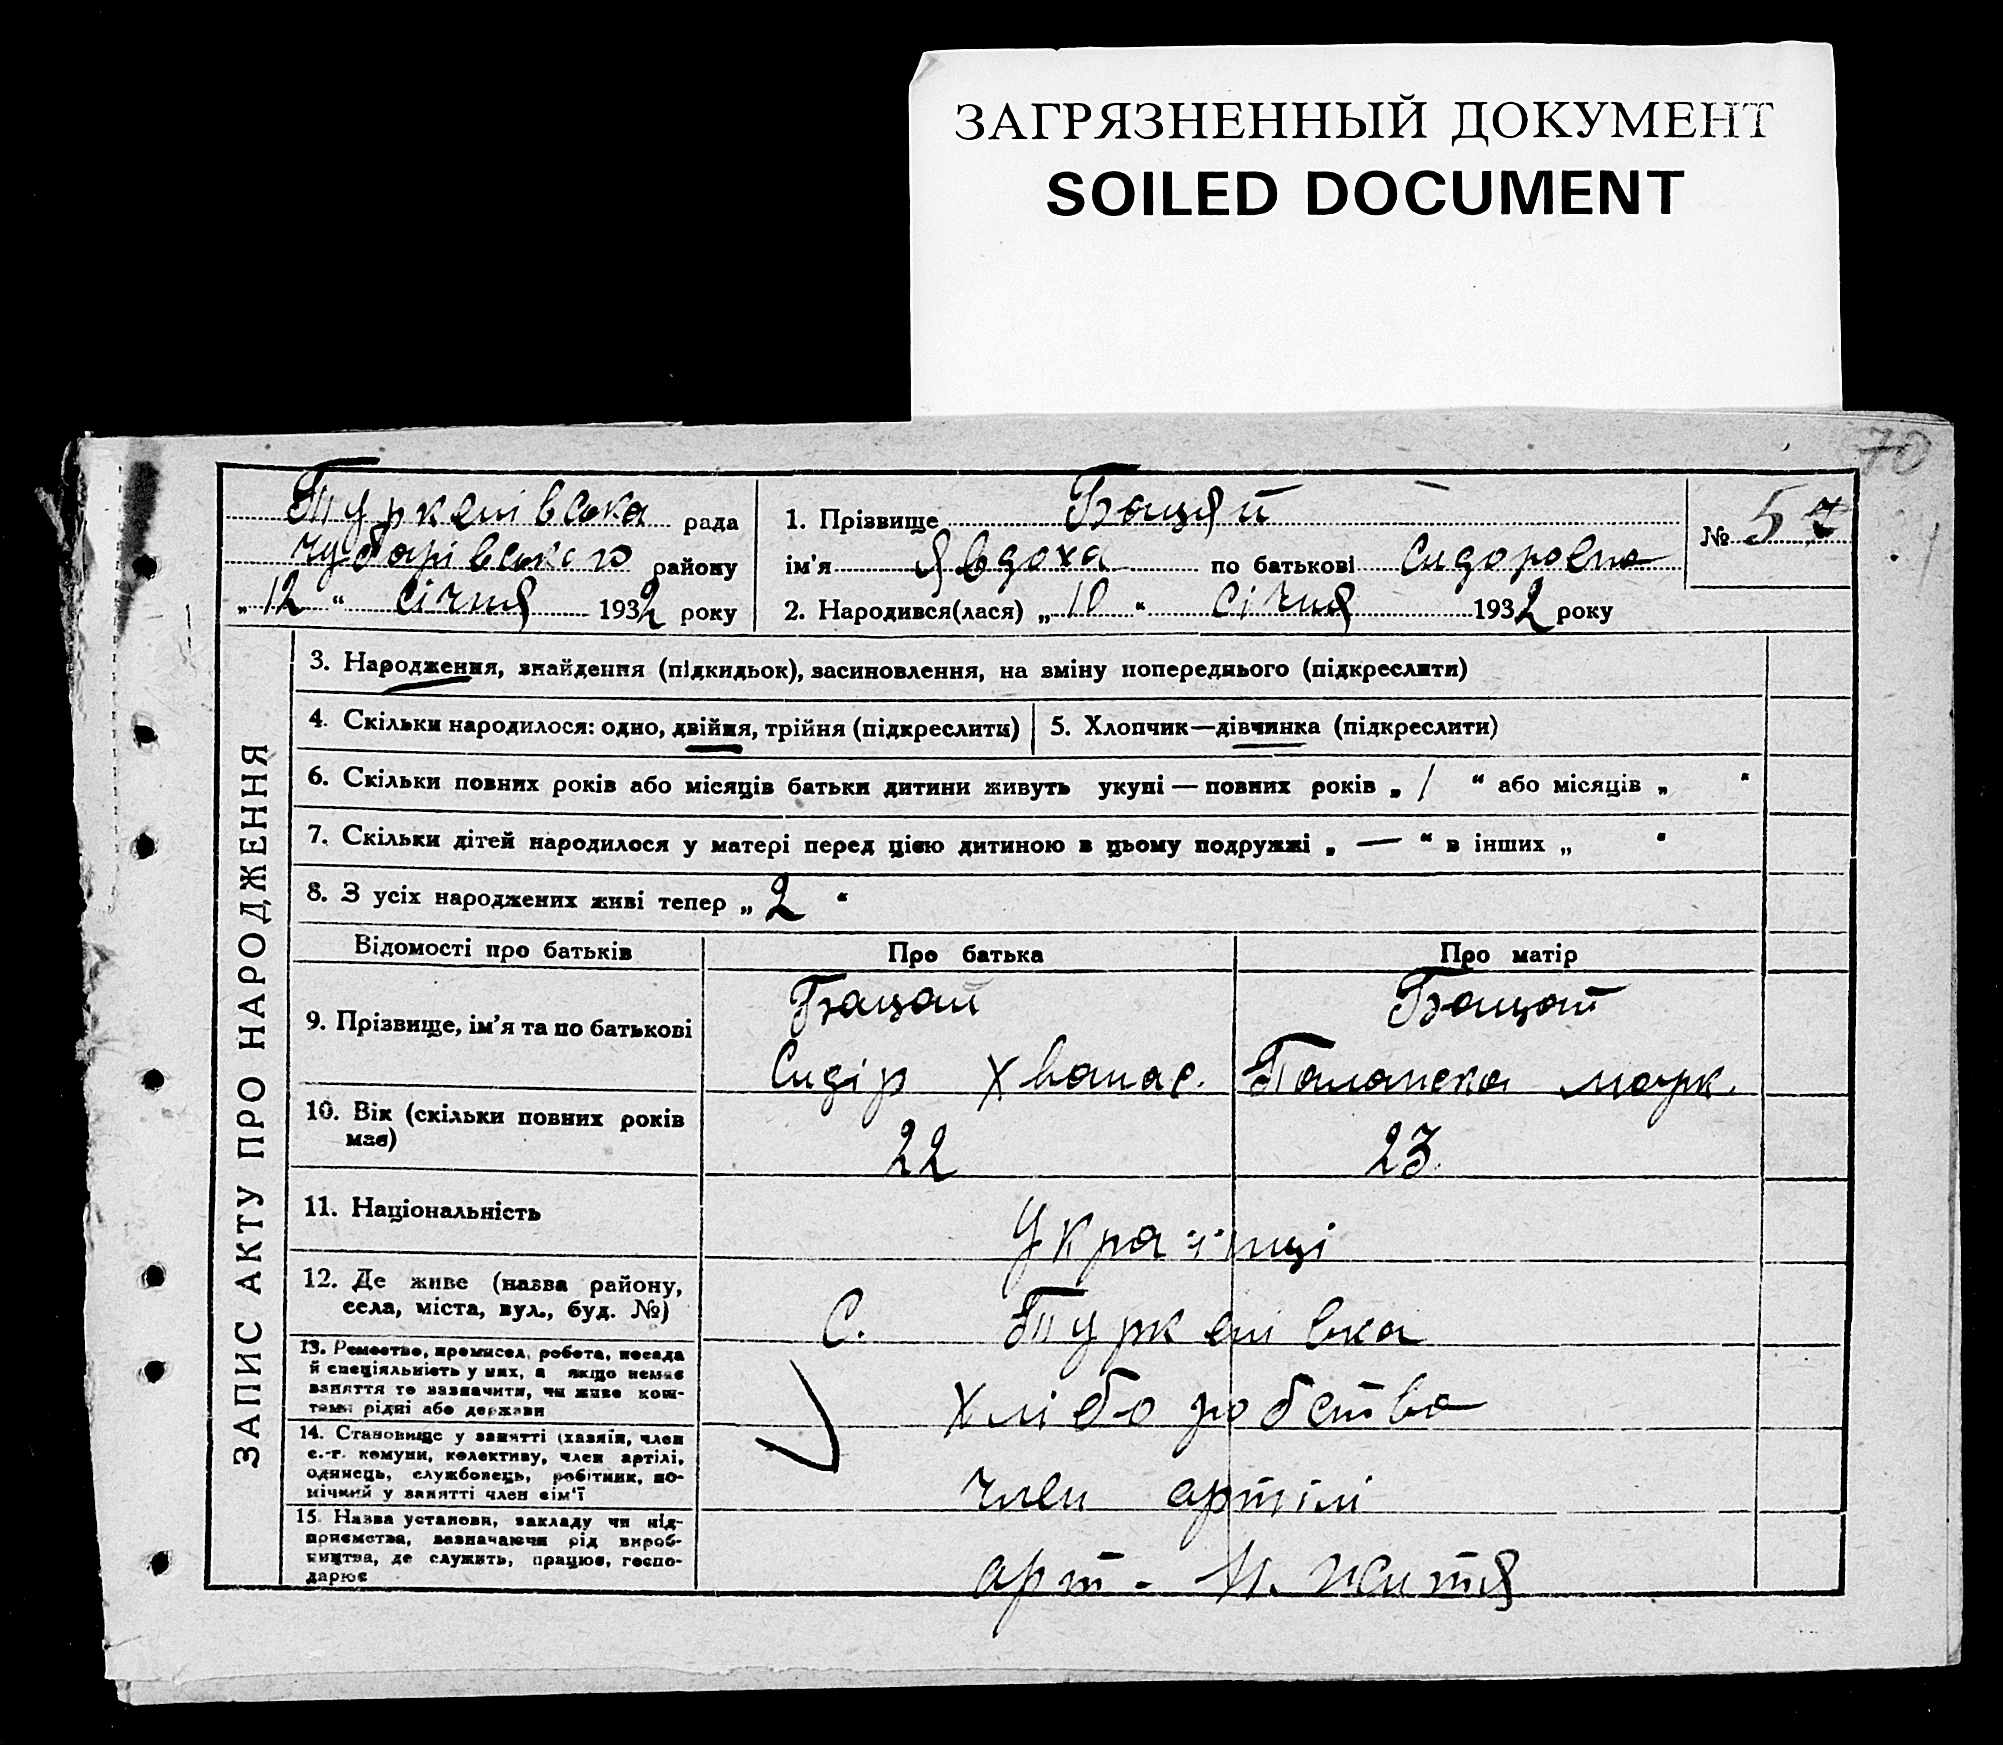 ЗАГРЯЗНЕННЫЙ ДОКУМЕНТ
SOILED DOCUMENT
70
Туркенівська рада
Чубарівського району
„12“ січня 1932 року
1. Прізвище Бацяй
ім'я Явдоха по батькові Сидоровна
№ 57
2. Народився(лася) „10“ січня 1932 року
ЗАПИС АКТУ ПРО НАРОДЖЕННЯ
3. Народження, знайдення (підкидьок), засиновлення, на зміну попереднього (підкреслити)
4. Скільки народилося: одно, двійня, трійня (підкреслити)
5. Хлопчик—дівчинка (підкреслити)
6. Скільки повних років або місяців батьки дитини живуть укупі — повних років „ 1 “ або місяців „ “
7. Скільки дітей народилося у матері перед цією дитиною в цьому подружжі „ — “ в інших „ “
8. З усіх народжених живі тепер „ 2 “
Відомості про батьків Про батька Про матір
9. Прізвище, ім'я та по батькові
Бацай
Сидір Хванас.
Бацай
Паланска марк.
10. Вік (скільки повних років має)
22 23
11. Національність
Українці
12. Де живе (назва району,
села, міста, вул., буд. №)
С. Туркенівка
13. Ремество, промисел, робота, посада
й спеціяльність у них, а якщо немає
заняття то зазначити, чи живе кош-
тами рідні або держави
хліборобство
14. Становище у занятті (хазяїн, член
с.-г. комуни, колективу, член артілі,
одинець, службовець, робітник, по-
мічний у занятті член сім'ї
член артілі
15. Назва установи, закладу чи під-
приємства, зазначаючи рід вироб-
ництва, де служить, працює, госпо-
дарює
арт. Н. життя